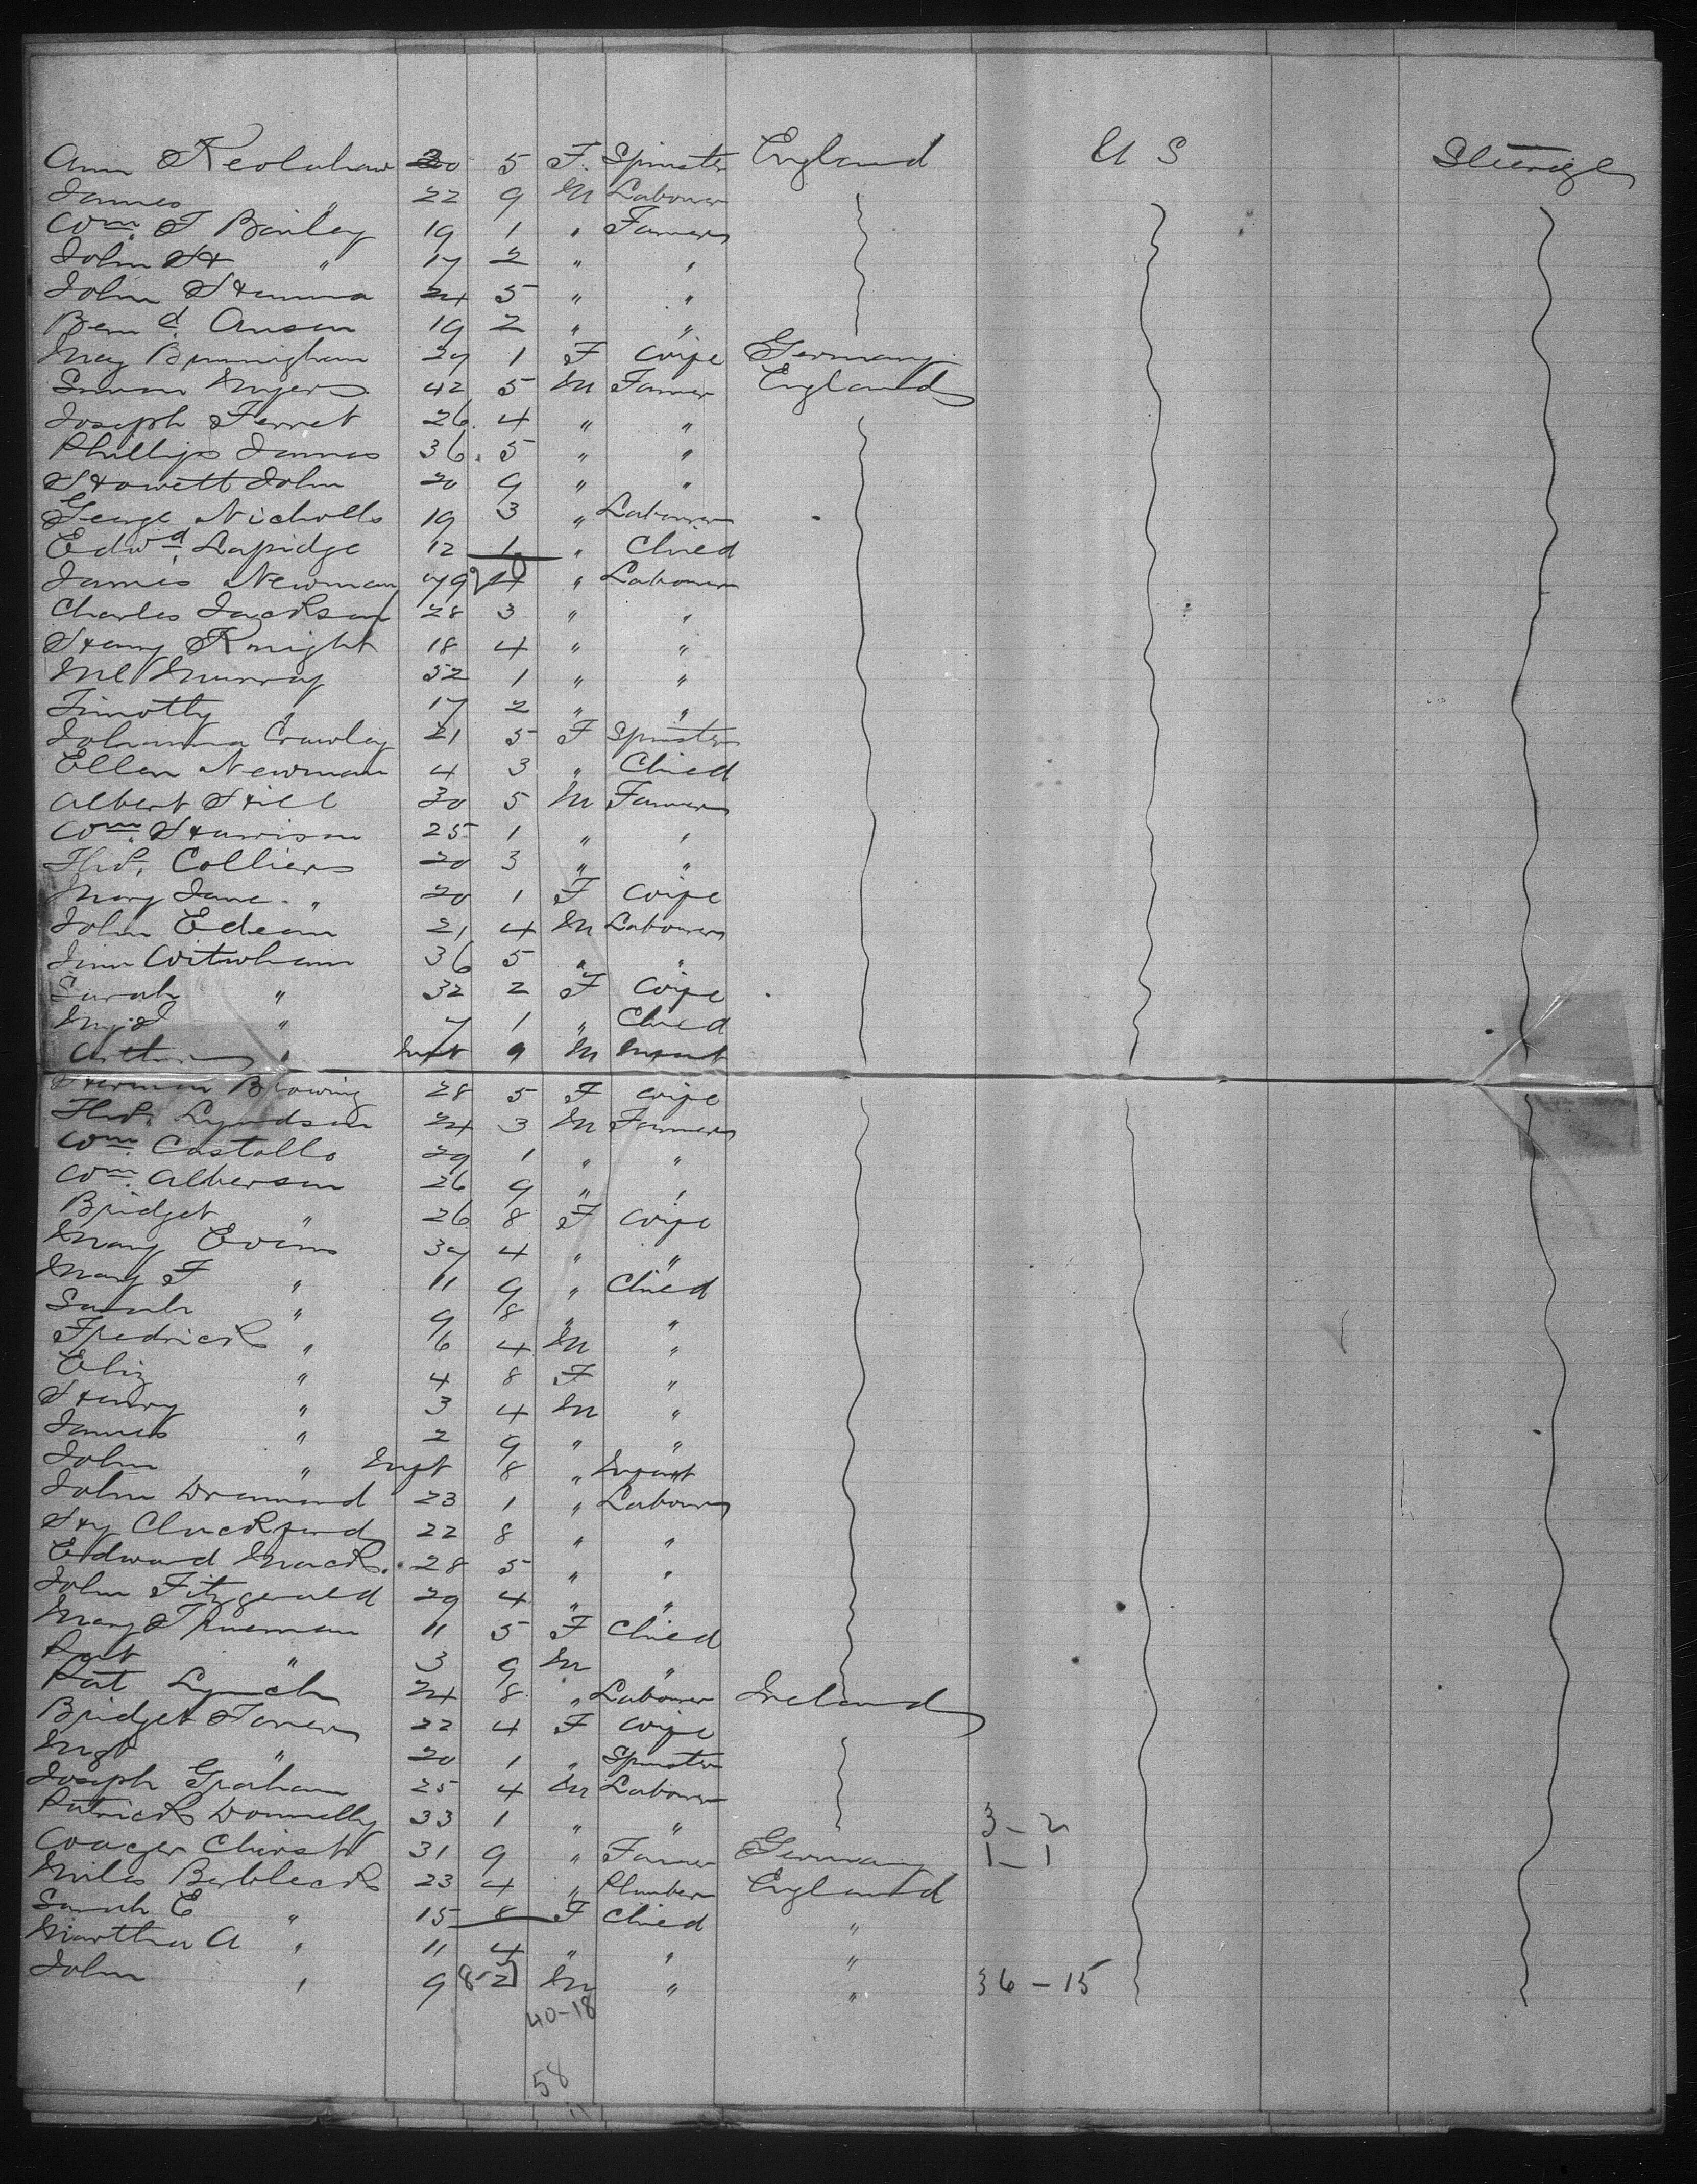 Ann Keolahan 20 5 F. Spinster England U S Steerage
James " 22 9 M Labourer
Wm. T Barley 19 1 " Farmer
John H " 17 2 " "
John Hanna 24 5 " "
Bernd. Anson 19 2 " "
May Bunnigham 29 1 F Wife Germany
Simon Myers 42 5 M Farmer England
Joseph Ferret 26 4 " "
Phillips James 36 5 " "
Howett John 20 9 " "
George Nicholls 19 3 " Labourer
Edwd. Lapidge 12 1 " Child
James Newman 49 4 " Labourer
Charles Jackson 28 3 " "
Henry Knight 18 4 " "
Ml Murray 52 1 " "
Timothy " 17 2 " "
Johanna Crawley 21 5 F Spinster
Ellen Newman 4 3 " Child
Albert Hill 30 5 M Farmer
Wm. Harrison 25 1 " "
Thos. Colliers 20 3 " "
Mary Jane " 20 1 F Wife
John Edean 21 4 M Labourer
Jim Witwham 36 5 " "
Sarah " 32 2 F Wife
" 7 1 " Child
Arthur " Inft 9 M Infant
Herman Browing 28 5 F Wife
Thos. Lyndsan 24 3 M Farmer
Wm. Costollo 29 1 " "
Wm. Alberson 26 9 " "
Bridget " 26 8 F Wife
Mary Evans 37 4 " "
Mary F " 11 9 " Child
Sarah " 9 8 " "
Fredrick " 6 4 M "
Eliz " 4 8 F "
Henry " 3 4 M "
James " 2 9 " "
John " Inft 8 " Infant
John Drummond 23 1 " Labourer
Hy Cluckford 22 8 " "
Edward Mack 28 5 " "
John Fitzgerald 29 4 " "
Mary Trueman 11 5 F Child
Pat " 3 9 M "
Pat Lynch 24 8 " Labourer Ireland
Bridget Farrer 22 4 F Wife
Mgt " 20 1 " Spinster
Joseph Graham 25 4 M Labourer
Patrick Donnelly 33 1 " " 3-2
Christ 31 9 " Farmer Germany 1-1
Miles Berbleck 23 4 " Plumber England
Sarah E " 15 8 F Child "
Martha A " 11 4 " " "
John " 9 852 M " " 36-15
40-18
58